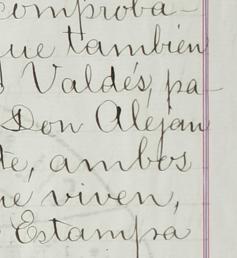 comproba-
que también
Valdés, pa-
Don Alejan
te, ambos
ue viven,
Estampa